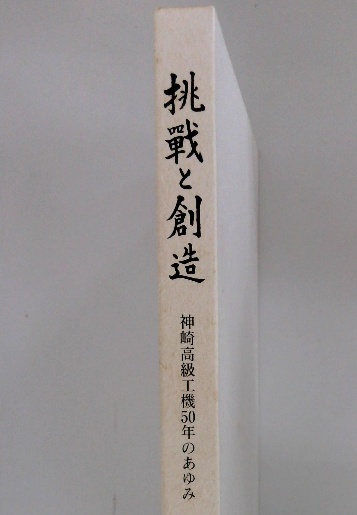 挑戰と創造
神崎高級工機50年のあゆみ